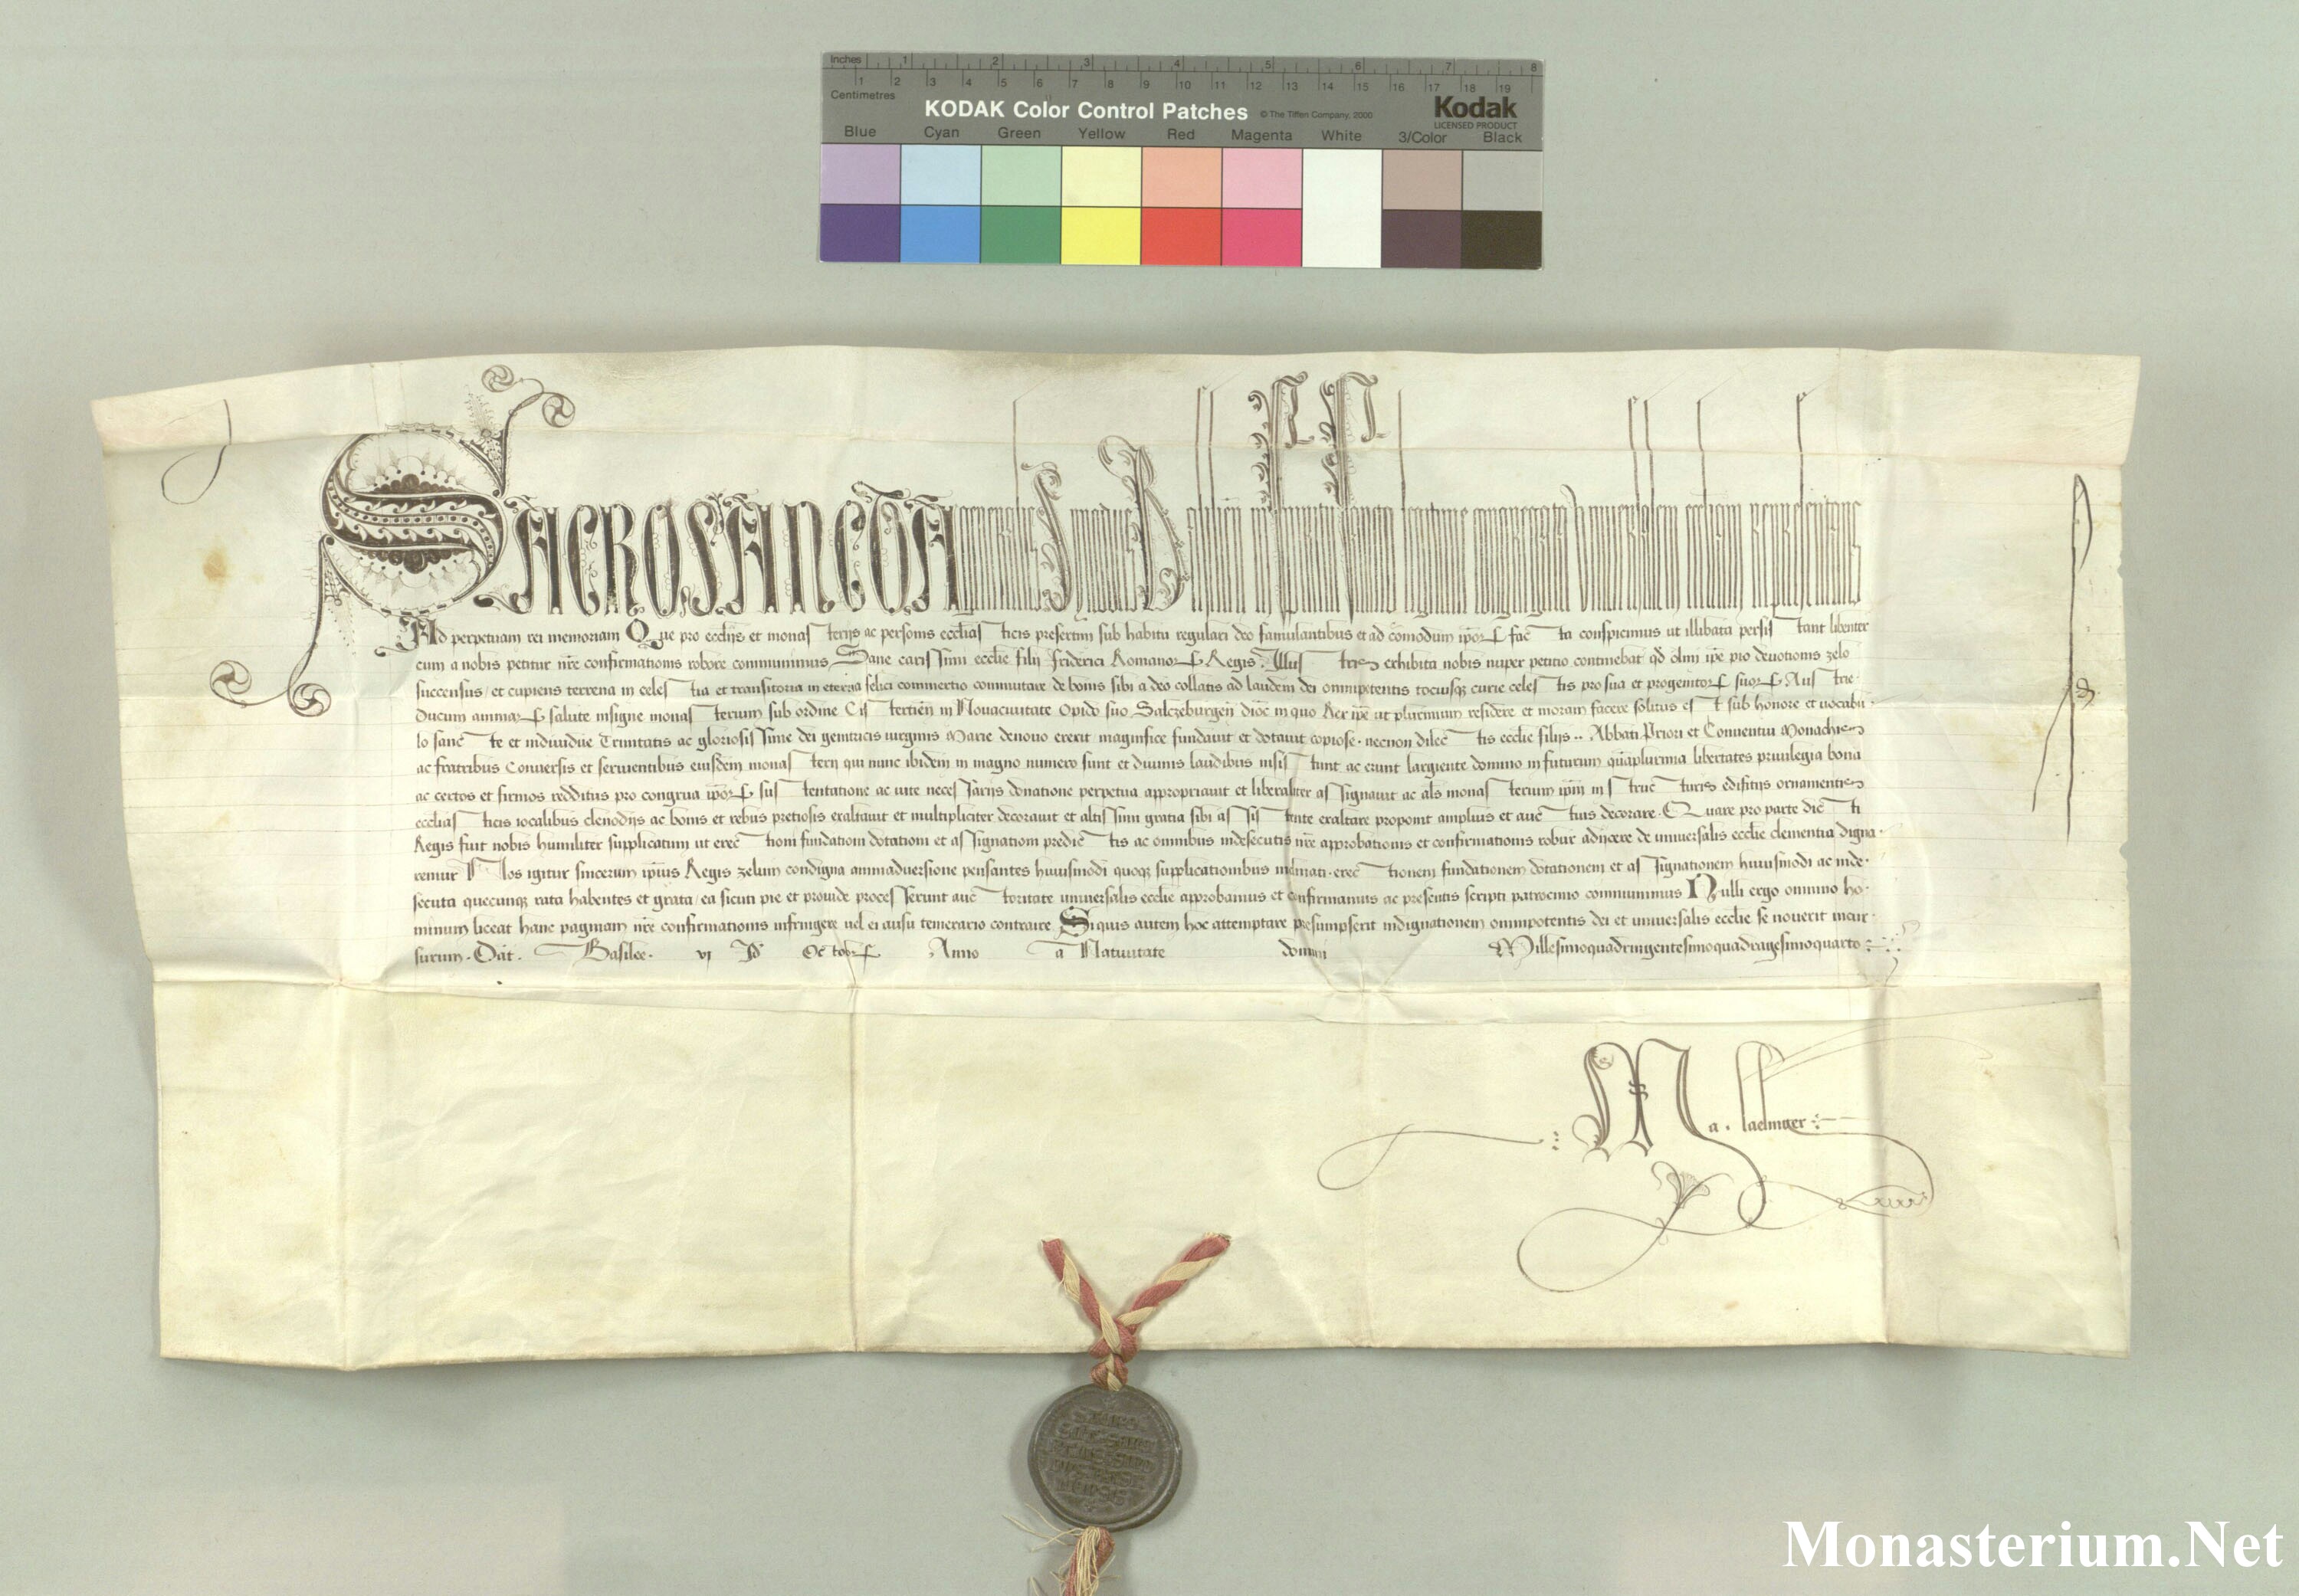 Inches 1 2 3 4 5 6 7 8
1 2 3 4 5 6 7 8 9 10 11 12 13 14 15 16 17 18 19
Centimetres
KODAK Color Control Patches © The Tiffen Company, 2000 Kodak
LICENSED PRODUCT
Blue Cyan Green Yellow Red Magenta White 3/Color Black
SACROSANCTA generalis Synodus Basilien in spiritu sancto legitime congregata Universalem eccliam representans
Ad perpetuam rei memoriam Que pro ecclijs et monasterijs ac personis ecclasticis presertim sub habitu regulari deo famulantibus et ad comodum ipor facta conspicimus ut illibata persistant libenter
cum a nobis petitur nre confirmationis robore communimus. Sane carissimi ecclie filij friderici Romanor Regis Illustris exhibita nobis nuper petitio continebat qd olim ipe pio devotionis zelo
succensus et cupiens terrena in celestia et transitoria in eterna felici commertio commutare de bonis sibi a deo collatis ad laudem dei omnipotentis tociusq curie celestis pro sua et progenitor suor Austrie
Ducum animar salute insigne monasterium sub ordine Cistertien in Novacivitate Opido suo Salczeburgen dioc in quo Rex ipe ut plurimum residere et moram facere solitus est sub honore et vocabu
lo sancte et individue Trinitatis ac gloriosissime dei genitricis virginis Marie denovo erexit magnifice fundavit et dotavit copiose. necnon dilectis ecclie filijs .. Abbati Priori et Conventui Monachis
ac fratribus Conversis et servientibus eiusdem monasterij qui nunc ibidem in magno numero sunt et divinis laudibus insistunt ac erunt largiente domino in futurum quaplurima libertates privilegia bona
ac certos et firmos redditus pro congrua ipor sustentatione ac vite necessarijs donatione perpetua appropriavit et liberaliter assignavit ac als monasterium ipm in structuris edifitijs ornamentis
ecclasticis iocalibus clenodijs ac bonis et rebus pretiosis exaltavit et multipliciter decoravit et altissimi gratia sibi assistente exaltare proponit amplius et auctius decorare. Quare pro parte dicti
Regis fuit nobis humiliter supplicatum ut erectioni fundationi dotationi et assignationi predictis ac omnibus indesecutis nre approbationis et confirmationis robur adijcere de universalis ecclie clementia digna
remur Nos igitur sincerum ipius Regis zelum condigna animadversione pensantes huiusmodi quoq supplicationibus inclinati. erectionem fundationem dotationem et assignationem huiusmodi ac inde
secuta quecunq rata habentes et grata ea sicuti pie et provide processerunt auctoritate universalis ecclie approbamus et confirmamus ac presentis scripti patrocinio communimus Nulli ergo omnino ho
minum liceat hanc paginam nre confirmationis infringere vel ei ausu temerario contraire. Siquis autem hoc attemptare presumpserit indignationem omnipotentis dei et universalis ecclie se noverit incur
surum. Dat. Basilee. vj Id Octobr Anno a Nativitate domini Millesimoquadringentesimoquadragesimoquarto
Monasterium.Net